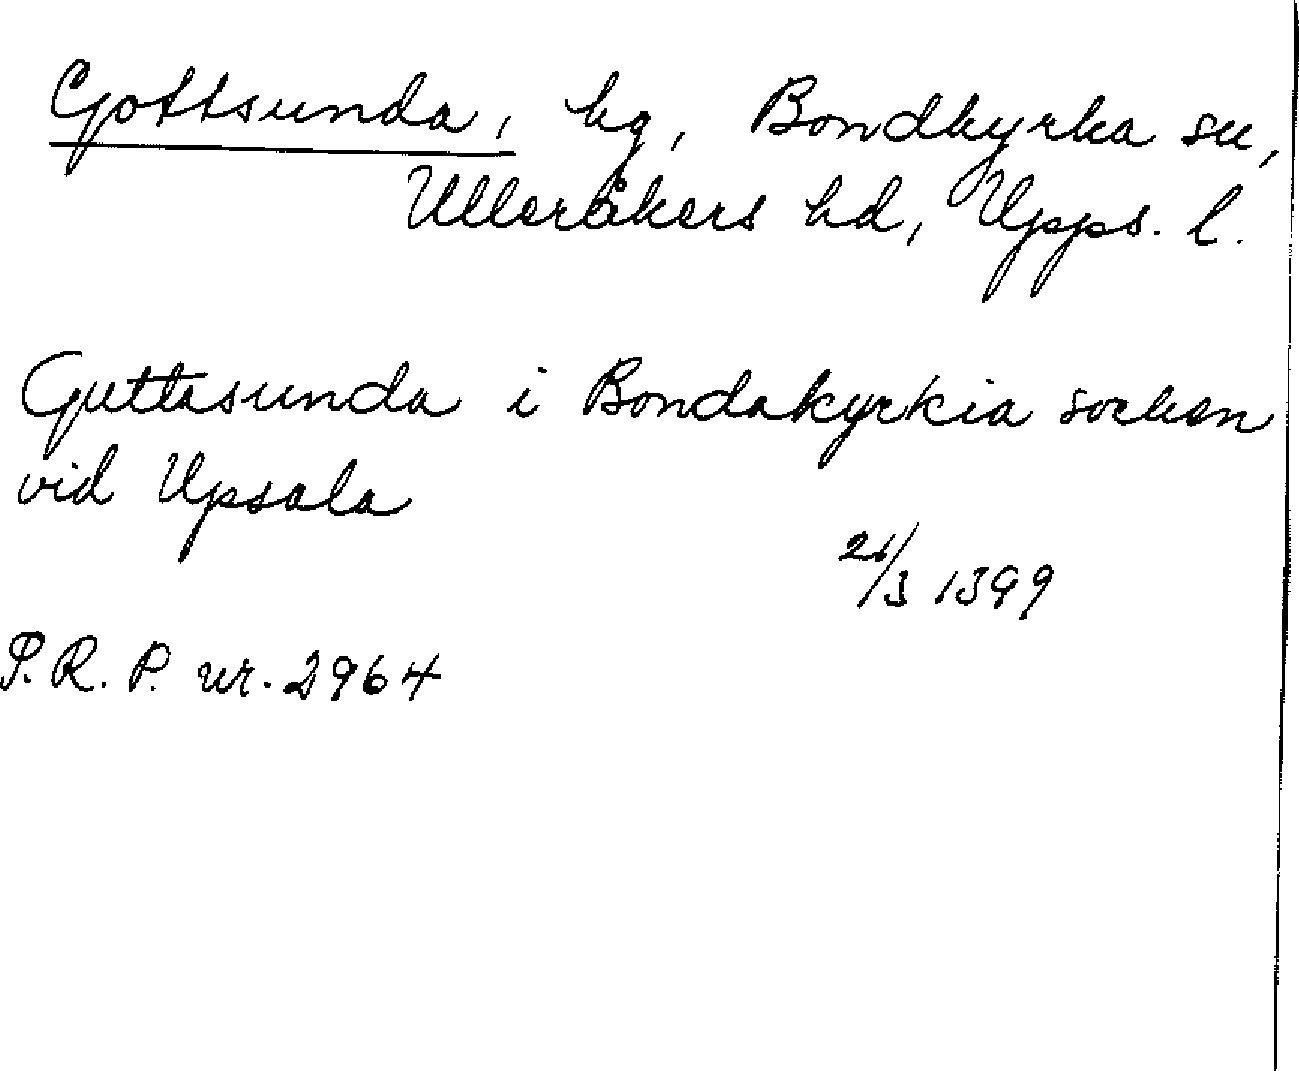 Gottsunda, hg, Bondkyrka sn,
Ulleråkers hd, Upps. l.
Guttasunda i Bondakyrkia socken
vid Upsala
21/3 1399
S.R.P. nr. 2964